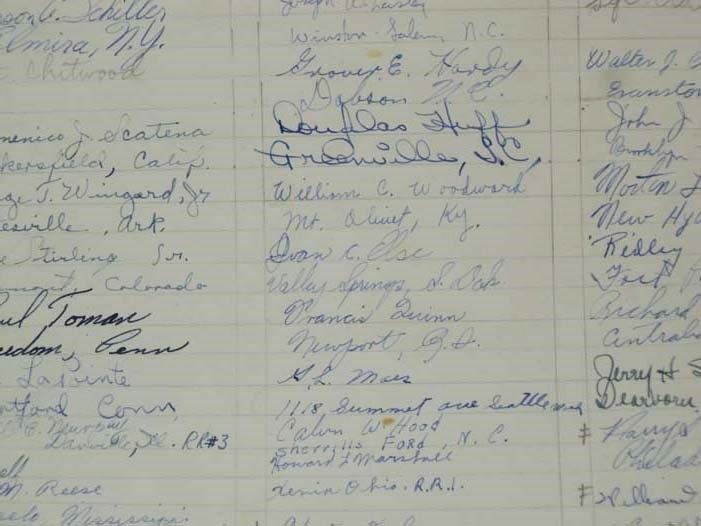 Schiller
Elmira, N.Y.
Chitwood
menico J. Scatena
kersfield, Calif.
ge T. Wingard, Jr
esville, Ark.
Stirling Sr.
mont, Colorado
Paul Toman
eedom, Penn
LaPointe
atford Conn
Danville, Ill. RR#3
M. Reese
elo, Mississippi
Joseph
Winston-Salem N.C.
Grover E. Hardy
Dobson N.C.
Douglas Huff
Greenville, S.C.
William C. Woodward
Mt. Olivet, Ky.
Ivan C. Olse
Valley Springs, S. Dak.
Francis Quinn
Newport, R.I.
Maes
1118, Summet ave Seattle Wash
Calvin W Hood
Sherrills Ford, N.C.
Howard L Marshall
Xenia Ohio. R.R.1.
Walter J.
Evanston
John J
Brooklyn
Morton
New Hy
Ridley
Fort
Richard
Centralia
Jerry H
Dearborn
Harry
Philad
William